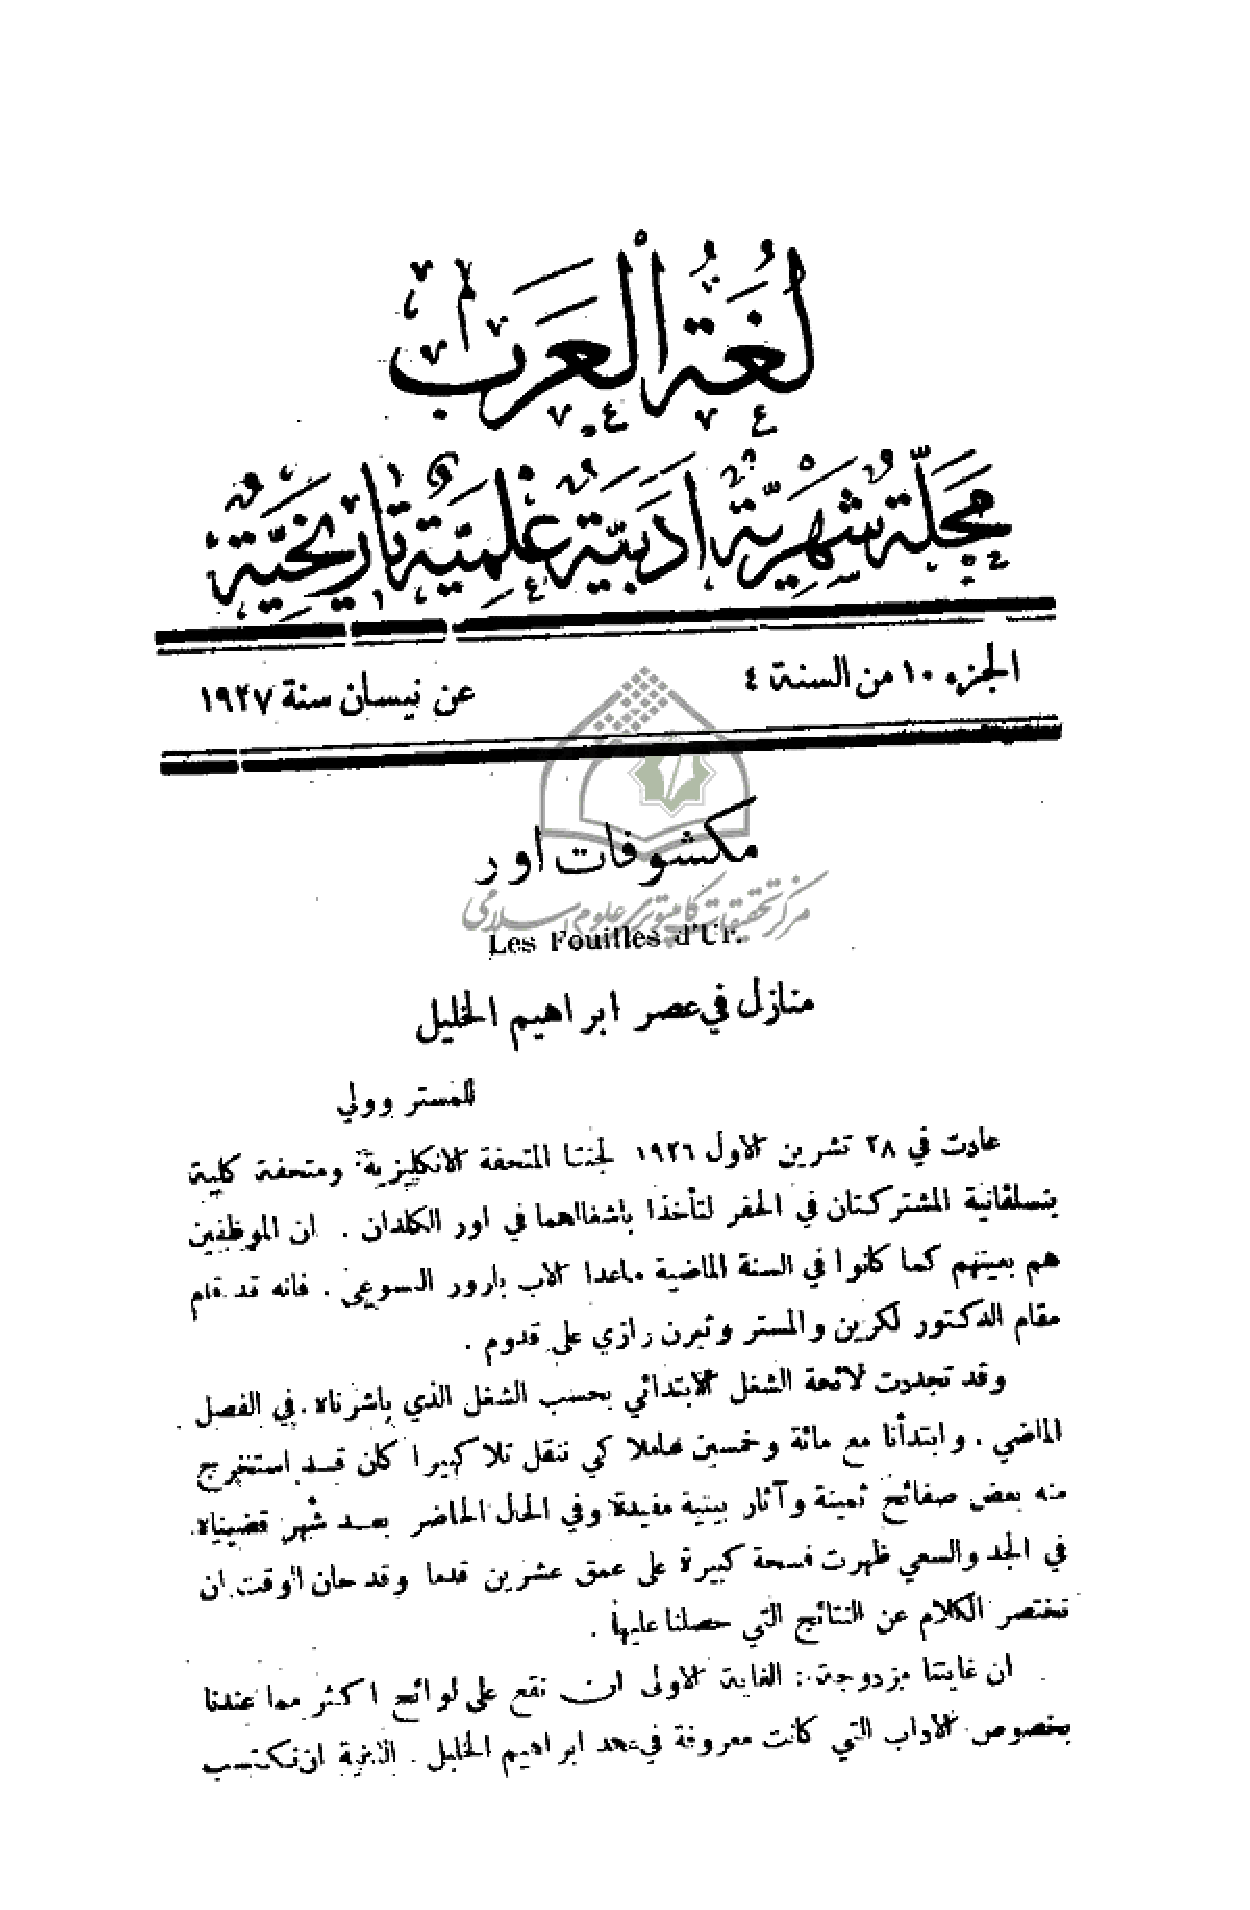 لُغَةُ الْعَرَبِ
مَجَلَّةٌ شَهْرِيَّةٌ اَدَبِيَّةٌ عِلْمِيَّةٌ تَارِيخِيَّةٌ
الجزء ١٠ من السنة ٤
عن نيسان سنة ١٩٢٧
مكشوفات اور
مركز تحقيقات كامپيوتری علوم اسلامی
Les Fouilles d'Ur.
منازل في عصر ابراهيم الخليل
للمستر وولي
عادت في ٢٨ تشرين الاول ١٩٢٦ لجنتا المتحفة الانكليزية ومتحفة كلية
بنسلفانية المشتركتان في الحفر لتأخذا باشغالهما في اور الكلدان . ان الموظفين
هم بعينهم كما كانوا في السنة الماضية ماعدا الاب بارور اليسوعي . فانه قد قام
مقام الدكتور لكرين والمستر وتيرن رازي على قدوم .
وقد تجددت لائحة الشغل الابتدائي بحسب الشغل الذي باشرناه في الفصل
الماضي . وابتدأنا مع مائة وخمسين عاملا كي ننقل تلا كبيرا كان قد استخرج
منه بعض صفائح ثمينة وآثار بينية مفيدة وفي الحال الحاضر بعد شهر قضيناه
في الجد والسعي ظهرت فسحة كبيرة على عمق عشرين قدما وقد حان الوقت ان
نختصر الكلام عن النتائج التي حصلنا عليها .
ان غايتنا مزدوجة : الغاية الاولى ان نقع على لوائح اكثر مما عندنا
بخصوص الآداب التي كانت معروفة في عهد ابراهيم الخليل . الثانية ان نكتسب